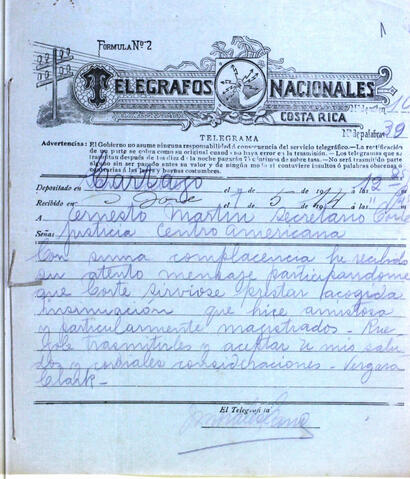 FORMULA Nº 2
TELEGRAFOS NACIONALES
COSTA RICA
Nº de palabras 39
TELEGRAMA
Advertencias: El Gobierno no asume ninguna responsabilidad á consecuencia del servicio telegráfico.—La rectificación
de un parte se cobra como su original cuando no haya error en la trasmisión. Los telegramas que se
trasmitan después de las diez de la noche pagarán
sin ser pagado antes su valor y
las leyes y buenas costumbres.
Depositado en Cartago el 9 5 1914 á las 12
Recibido en S José el 5 1914 á las
A Ernesto Martin Secretario Corte
Señas Justicia Centro Americana
Con suma complacencia he recibido
su atento mensaje participandome
que Corte sirviose prestar acogida
insinuación que hice amistosa
y particularmente magistrados - Rue
gole trasmitirles y aceptar U mis salu
dos y cordiales consideraciones - Vergara
Clark -
El Telegrafista